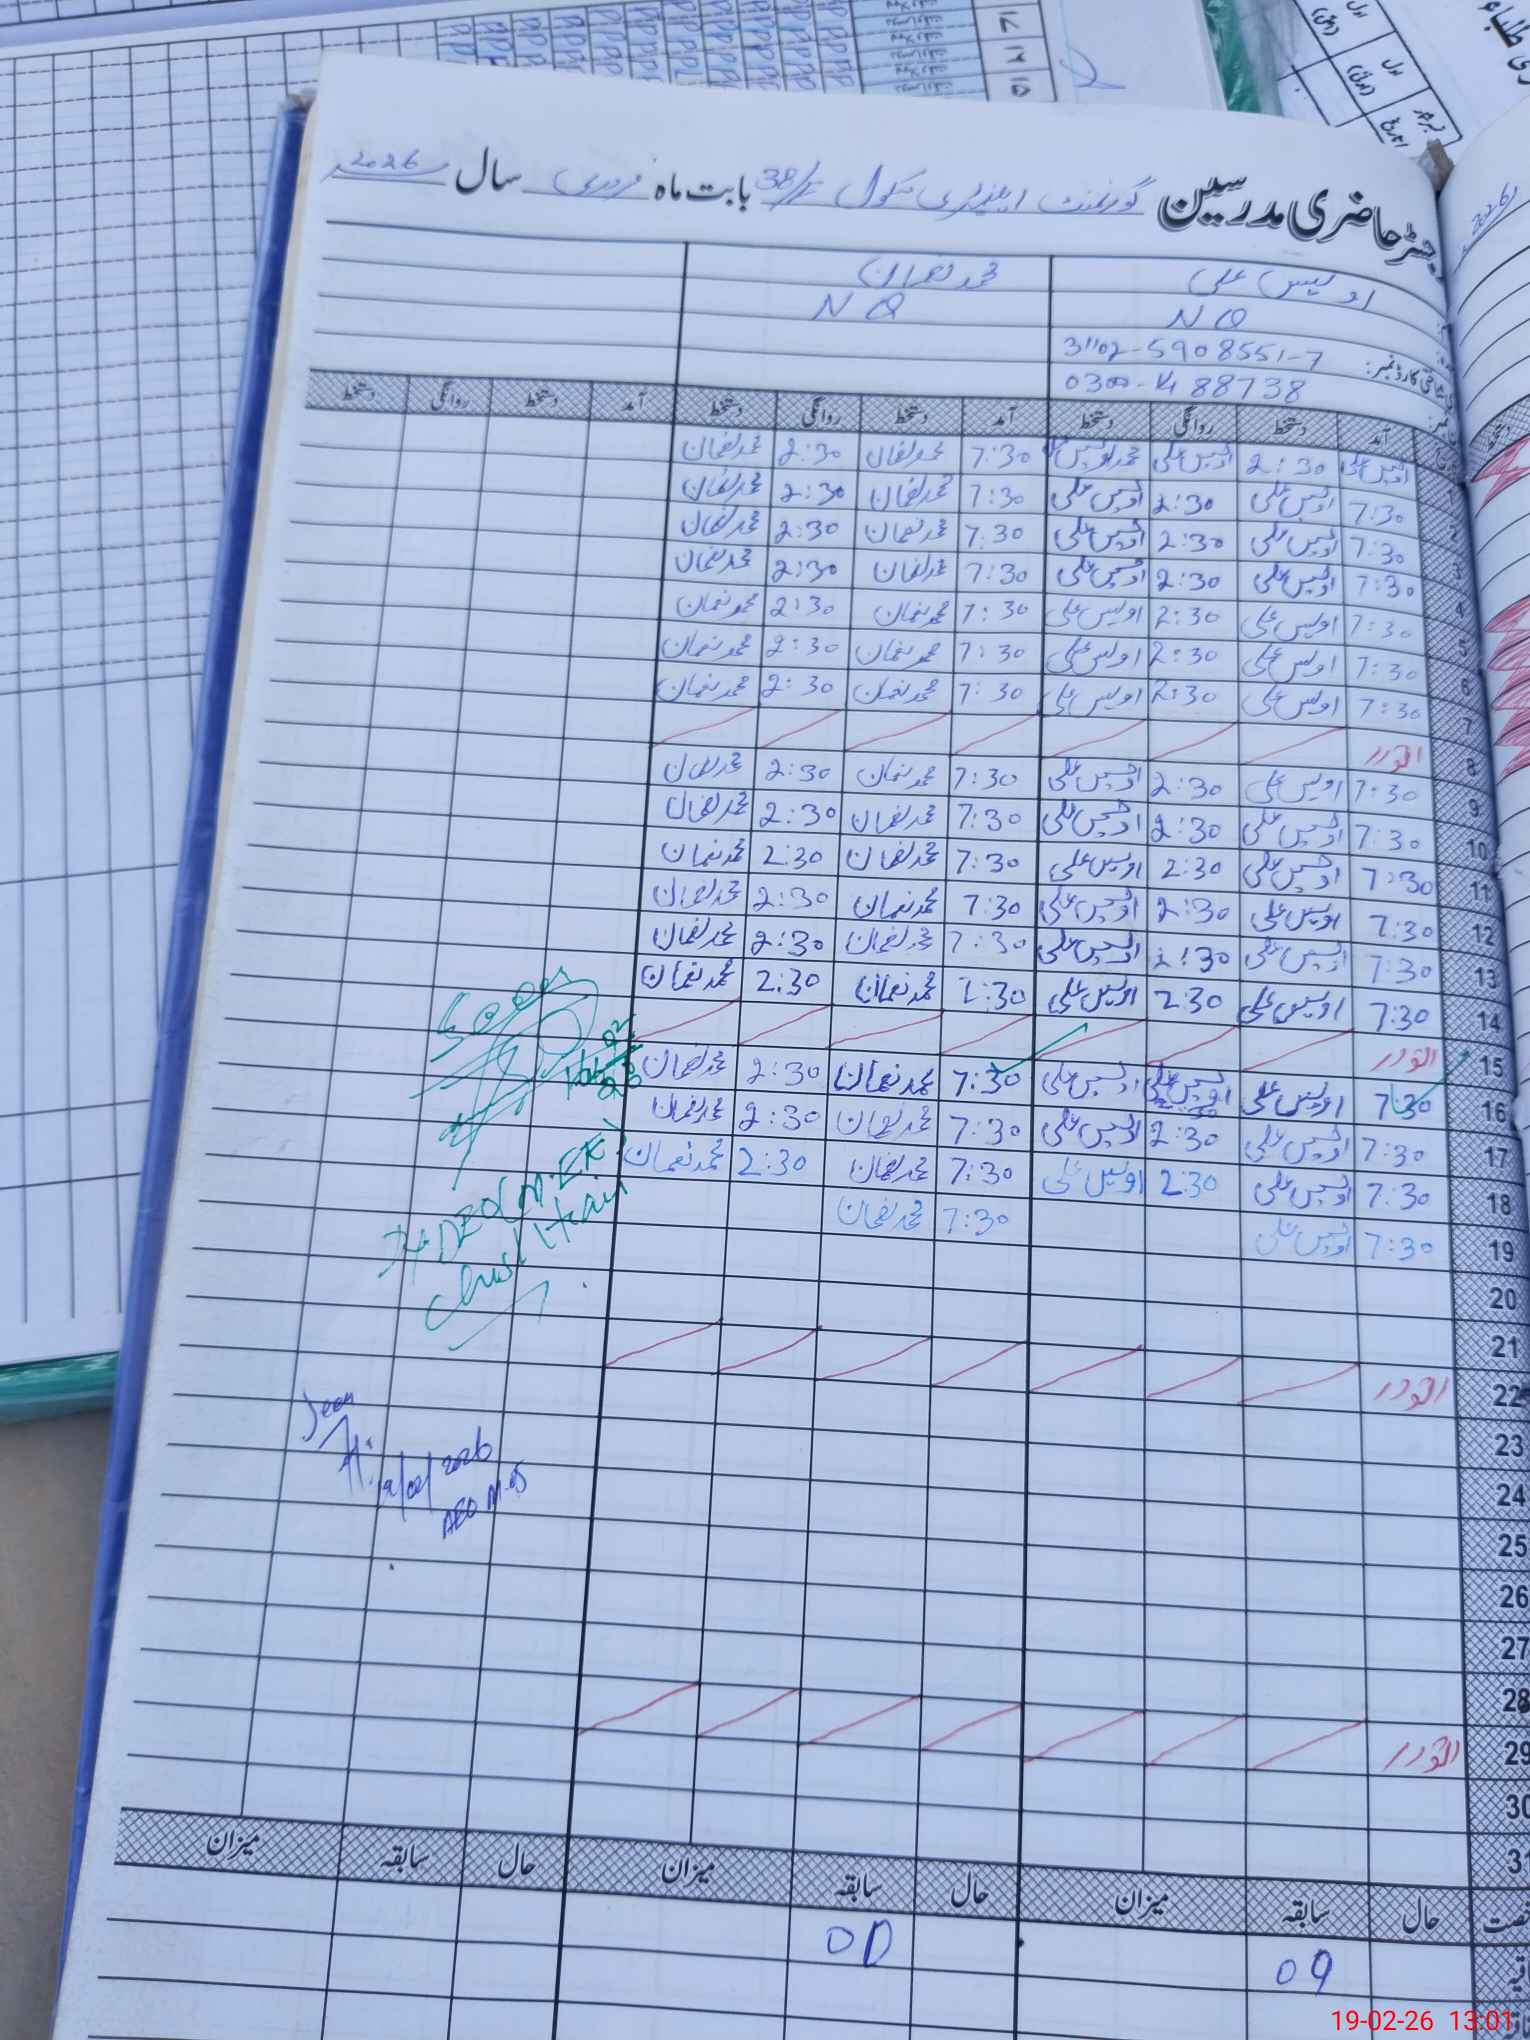 رجسٹر حاضری مدرسین گورنمنٹ ایلیمنٹری سکول 38/ بابت ماہ فروری سال 2026ء
اویس علی محمد نعمان
NQ NQ
31102-5908551-7
آمد دستخط روانگی دستخط آمد دستخط روانگی دستخط آمد دستخط روانگی دستخط
1 اویس علی 2:30 اویس علی محمد اویس 7:30 محمد نعمان 2:30 محمد نعمان
2 7:30 اویس علی 2:30 اویس علی 7:30 محمد نعمان 2:30 محمد نعمان
3 7:30 اویس علی 2:30 اویس علی 7:30 محمد نعمان 2:30 محمد نعمان
4 7:30 اویس علی 2:30 اویس علی 7:30 محمد نعمان 2:30 محمد نعمان
5 7:30 اویس علی 2:30 اویس علی 7:30 محمد نعمان 2:30 محمد نعمان
6 7:30 اویس علی 2:30 اویس علی 7:30 محمد نعمان 2:30 محمد نعمان
7 7:30 اویس علی 2:30 اویس علی 7:30 محمد نعمان 2:30 محمد نعمان
8 اتوار
9 7:30 اویس علی 2:30 اویس علی 7:30 محمد نعمان 2:30 محمد نعمان
10 7:30 اویس علی 2:30 اویس علی 7:30 محمد نعمان 2:30 محمد نعمان
11 7:30 اویس علی 2:30 اویس علی 7:30 محمد نعمان 2:30 محمد نعمان
12 7:30 اویس علی 2:30 اویس علی 7:30 محمد نعمان 2:30 محمد نعمان
13 7:30 اویس علی 2:30 اویس علی 7:30 محمد نعمان 2:30 محمد نعمان
14 7:30 اویس علی 2:30 اویس علی 7:30 محمد نعمان 2:30 محمد نعمان
15 اتوار
16 7:30 اویس علی اویس علی اویس علی 7:30 محمد نعمان 2:30 محمد نعمان
17 7:30 اویس علی 2:30 اویس علی 7:30 محمد نعمان 2:30 محمد نعمان
18 7:30 اویس علی 2:30 اویس علی 7:30 محمد نعمان 2:30 محمد نعمان
19 7:30 اویس علی 7:30 محمد نعمان
20
21
22 اتوار
23
24
25
26
27
28
29 اتوار
30
31
Dy. DEO (M.EE)
Chishtian
Seen
19/02/2026
AEO
حال سابقہ میزان حال سابقہ میزان حال سابقہ میزان
09 0D
19-02-26 13:01